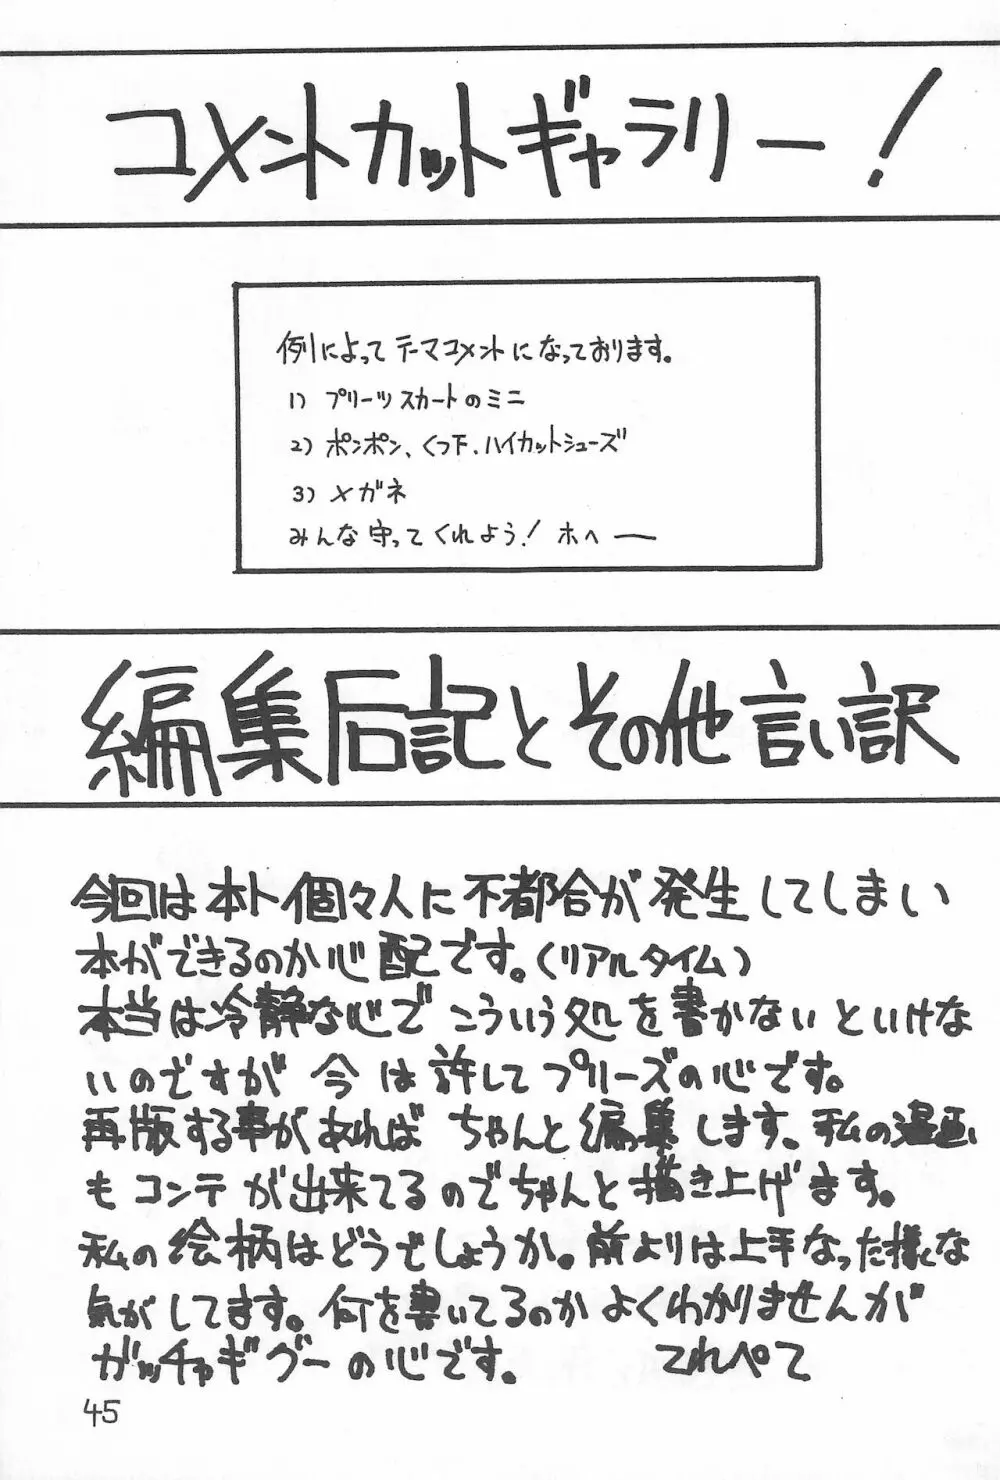 コメントカットギャラリー！
例によってテーマコメントになっております。
1) プリーツスカートのミニ
2) ポンポン、くつ下、ハイカットシューズ
3) メガネ
みんな守ってくれよう！ホヘー
編集后記とその他言い訳
今回は本ト個々人に不都合が発生してしまい
本ができるのか心配です。（リアルタイム）
本当は冷静な心でこういう処を書かないといけな
いのですが今は許してプリーズの心です。
再版する事があればちゃんと編集します、私の漫画
もコンテが出来てるのでちゃんと描き上げます。
私の絵柄はどうでしょうか。前よりは上手なった様な
気がしてます。何を書いてるのかよくわかりませんが
ガッチャギグーの心です。 てれぺて
45